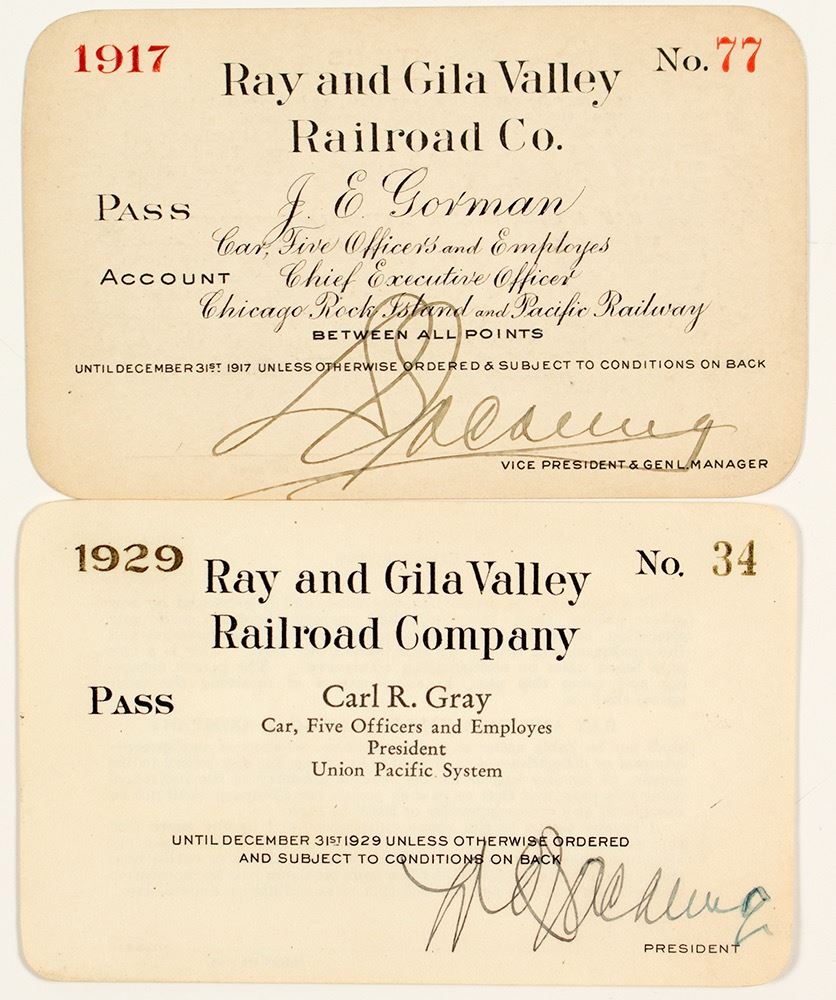 1917
No. 77
Ray and Gila Valley
Railroad Co.
PASS
J. E. Gorman
Car, Five Officers and Employes
ACCOUNT Chief Executive Officer
Chicago Rock Island and Pacific Railway
BETWEEN ALL POINTS
UNTIL DECEMBER 31ST 1917 UNLESS OTHERWISE ORDERED & SUBJECT TO CONDITIONS ON BACK
VICE PRESIDENT & GENL. MANAGER
1929
No. 34
Ray and Gila Valley
Railroad Company
PASS
Carl R. Gray
Car, Five Officers and Employes
President
Union Pacific System
UNTIL DECEMBER 31ST 1929 UNLESS OTHERWISE ORDERED
AND SUBJECT TO CONDITIONS ON BACK
PRESIDENT